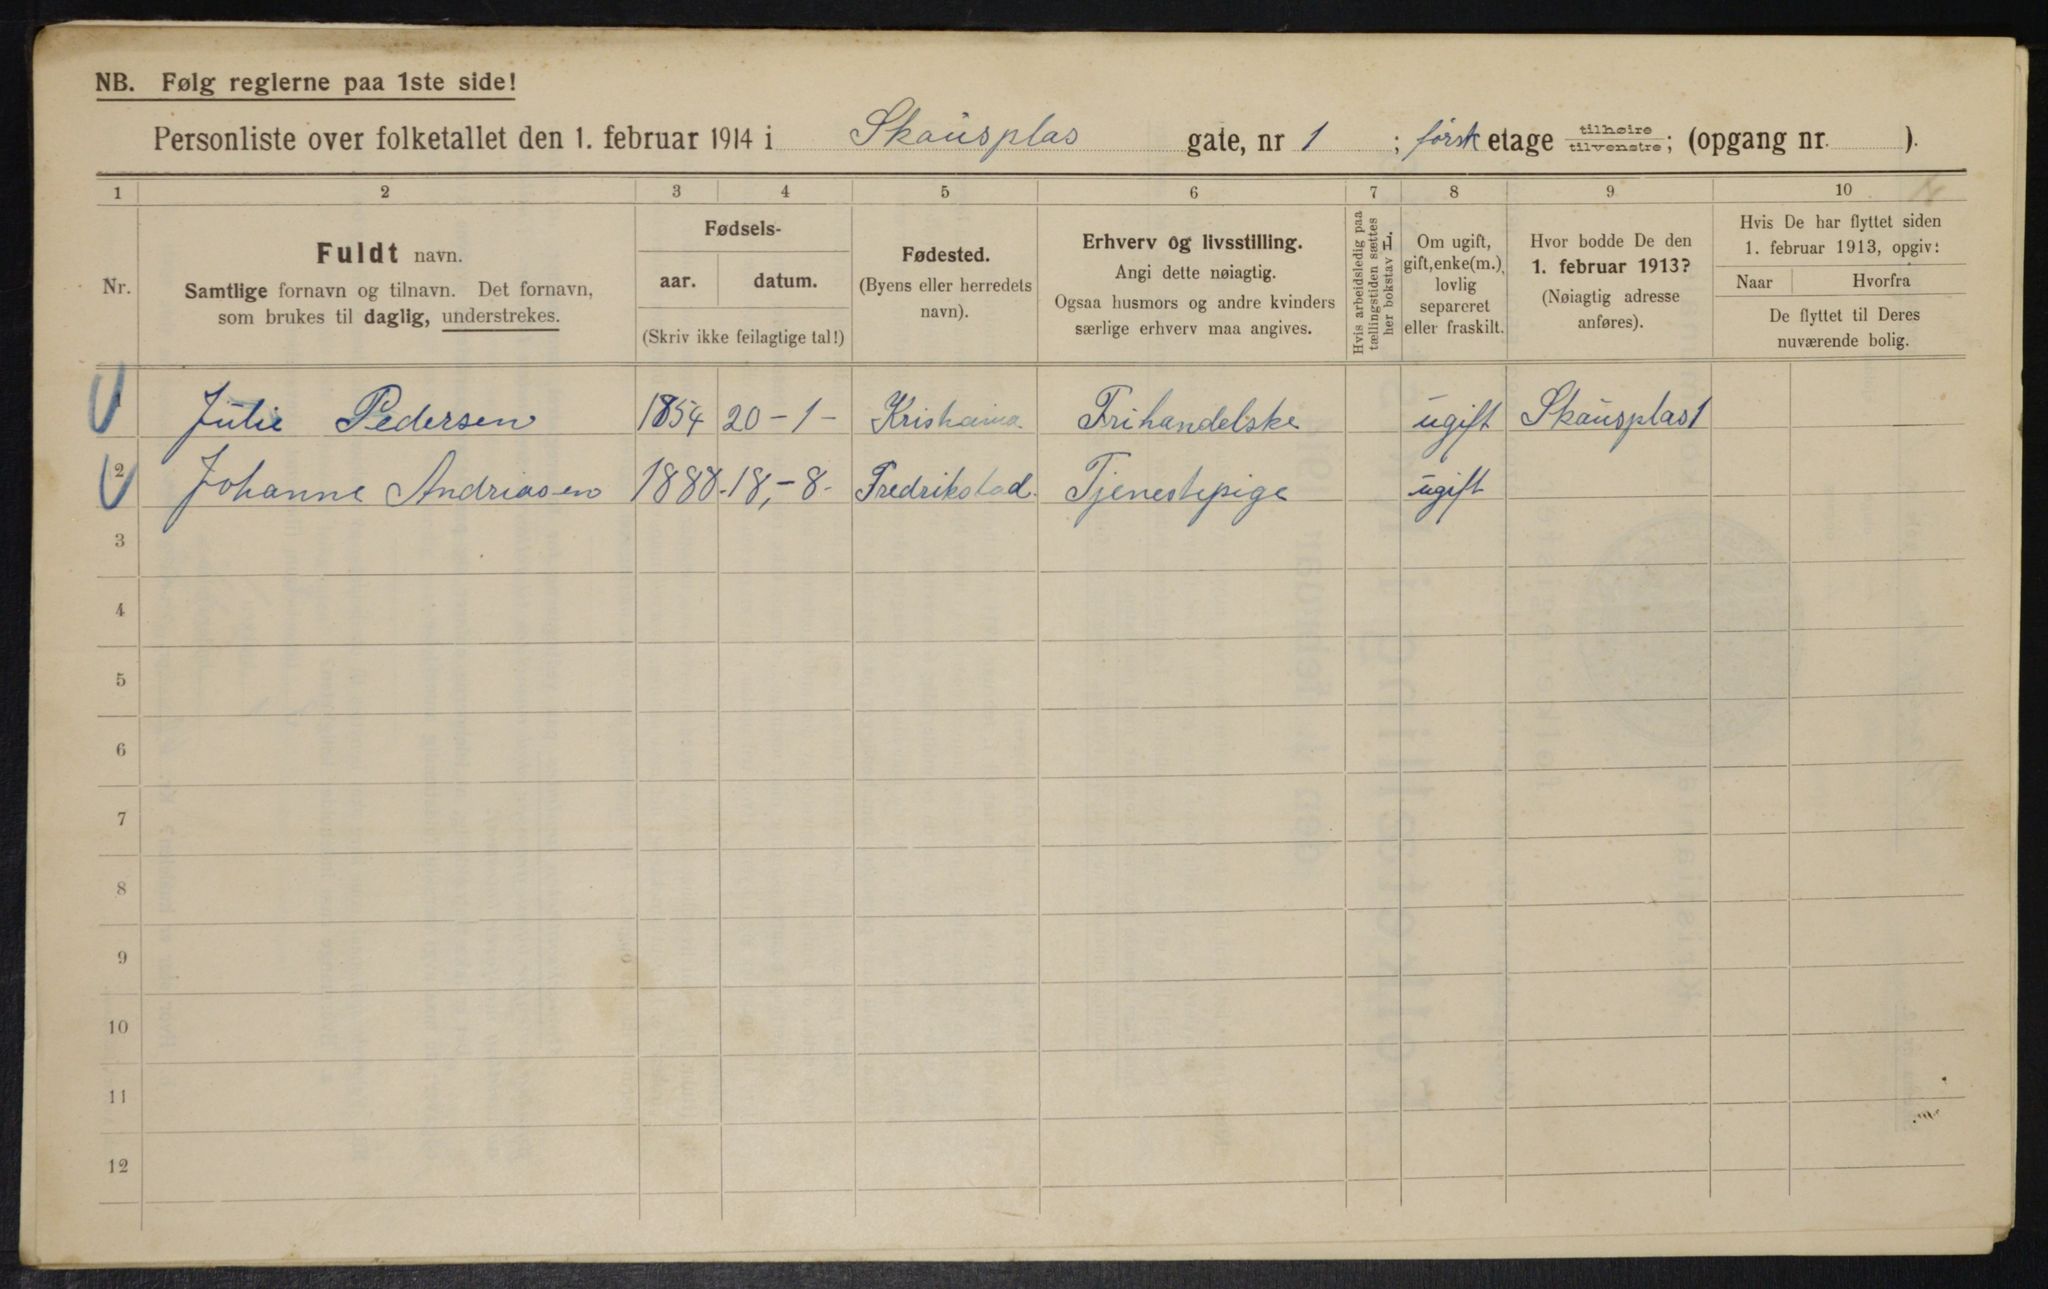 NB. Følg reglerne paa 1ste side!
Personliste over folketallet den 1. februar 1914 i Skausplas gate, nr 1 ; først etage tilhøire tilvenstre; (opgang nr. ).
1 2 3 4 5 6 7 8 9 10
Nr.
Fuldt navn.
Samtlige fornavn og tilnavn. Det fornavn,
som brukes til daglig, understrekes.
Fødsels-
aar. datum.
(Skriv ikke feilagtige tal!)
Fødested.
(Byens eller herredets
navn).
Erhverv og livsstilling.
Angi dette nøiagtig.
Ogsaa husmors og andre kvinders
særlige erhverv maa angives.
Hvis arbeidsledig paa
tællingstiden sættes
her bokstav L.
Om ugift,
gift, enke(m.),
lovlig
separeret
eller fraskilt.
Hvor bodde De den
1. februar 1913?
(Nøiagtig adresse
anføres).
Hvis De har flyttet siden
1. februar 1913, opgiv:
Naar Hvorfra
De flyttet til Deres
nuværende bolig.
1 Julie Pedersen 1854 20-1- Kristiania Frihandelske ugift Skausplas 1
2 Johanne Andriasen 1888. 18,-8- Fredrikstad. Tjenestepige ugift
3
4
5
6
7
8
9
10
11
12